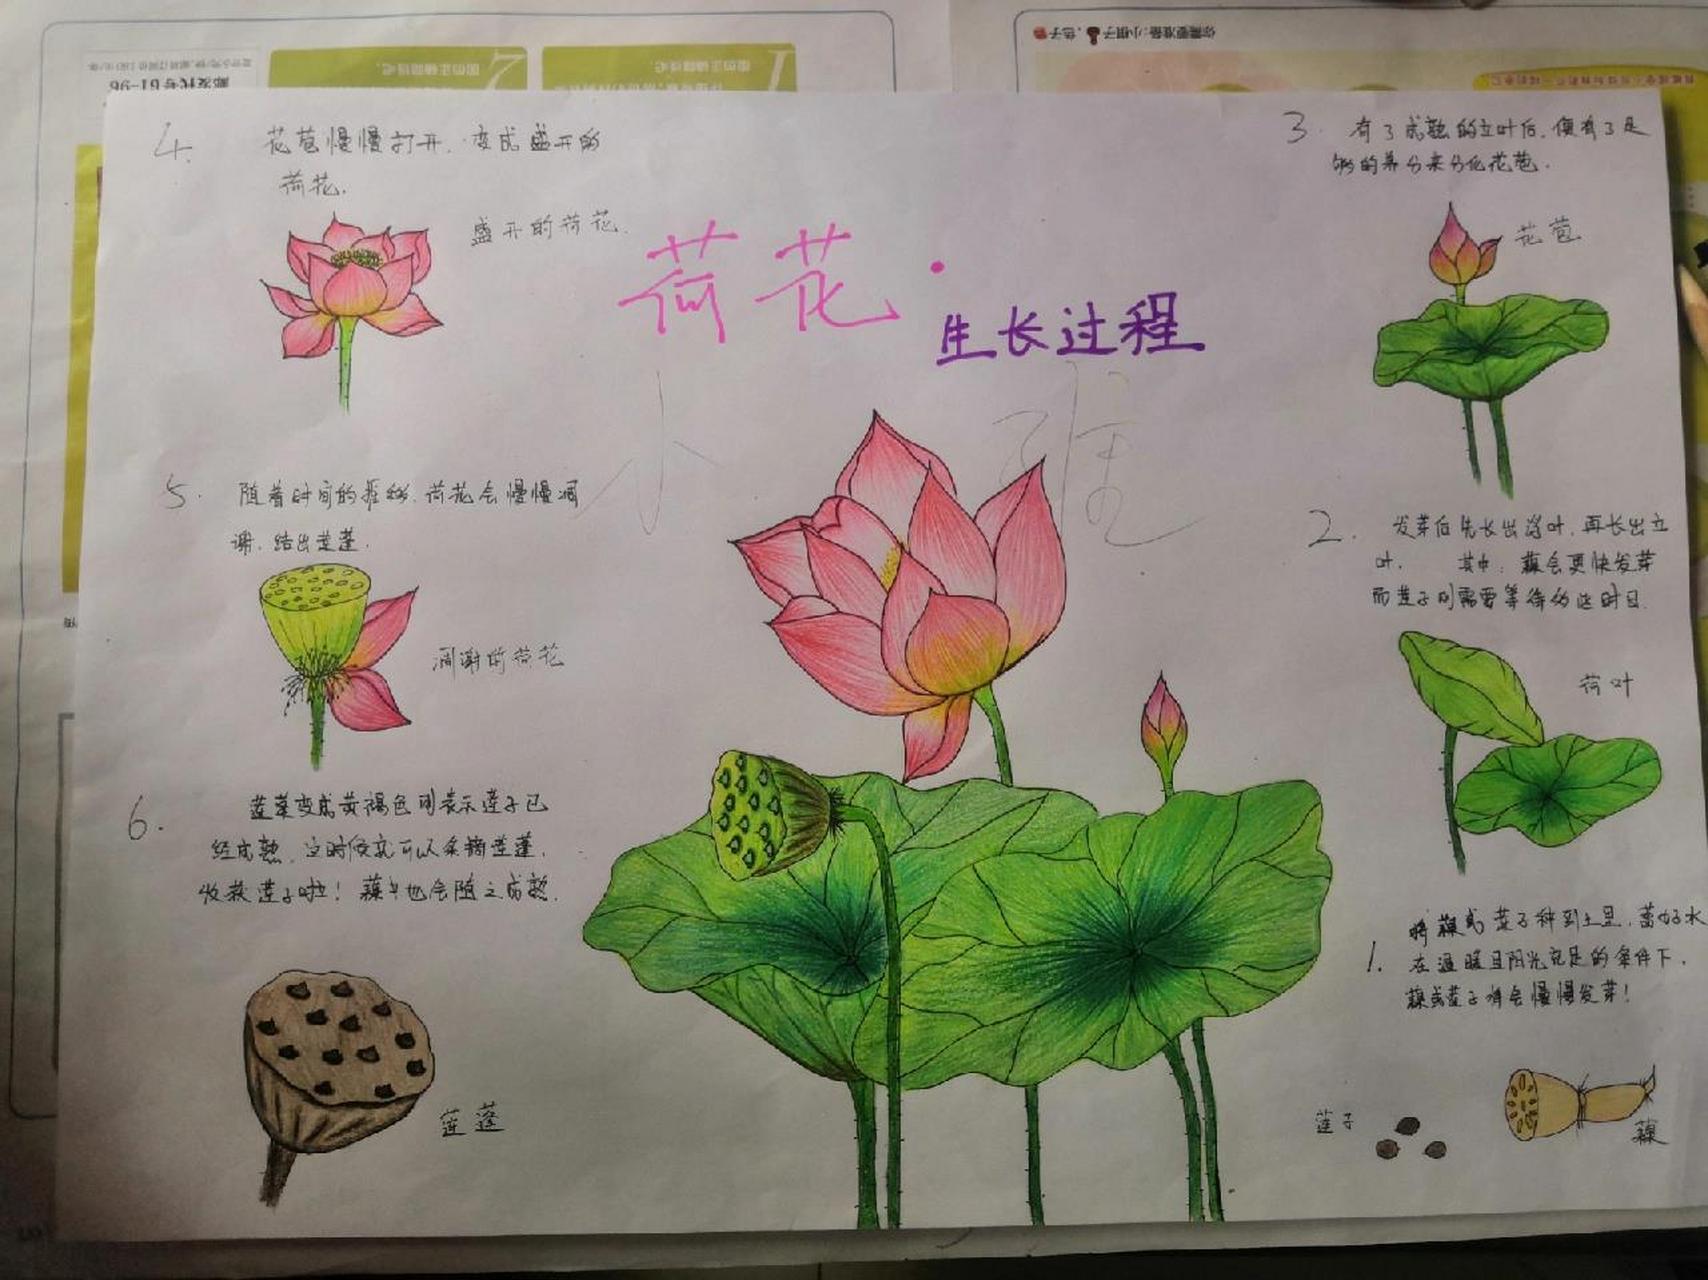 荷花·
生长过程
小雅
4. 花苞慢慢打开,变成盛开的
荷花.
盛开的荷花.
5. 随着时间的推移,荷花会慢慢凋
谢,结出莲蓬.
凋谢的荷花
6. 莲蓬变成黄褐色则表示莲子已
经成熟,这时候就可以采摘莲蓬,
收获莲子啦!藕也会随之成熟.
莲蓬
3. 有了成熟的立叶后,便有了足
够的养分来分化花苞.
花苞
2. 发芽后先长出浮叶,再长出立
叶. 其中,藕会更快发芽
而莲子则需要等待约些时日.
荷叶
1. 将藕或莲子种到土里,蓄好水
在温暖且阳光充足的条件下,
藕或莲子将会慢慢发芽!
莲子
藕
邮发代号 61-96
你需要准备:小棋子、色子
1
2